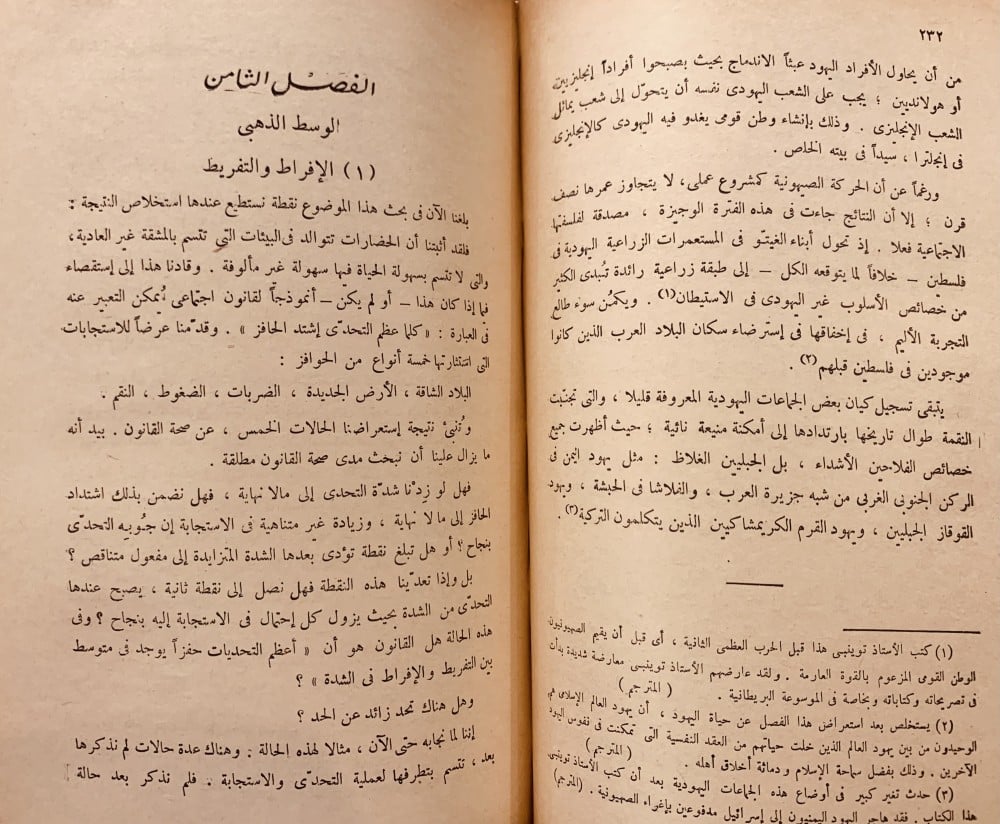 ٢٣٢
من أن يحاول الأفراد اليهود عبثاً الاندماج بحيث يصبحوا أفراداً إنجليزيين
أو هولانديين ؛ يجب على الشعب اليهودى نفسه أن يتحوّل إلى شعب يماثل
الشعب الإنجليزى . وذلك بإنشاء وطن قومى يغدو فيه اليهودى كالإنجليزى
فى إنجلترا ، سيداً فى بيته الخاص .
ورغماً عن أن الحركة الصهيونية كمشروع عملى، لا يتجاوز عمرها نصف
قرن ؛ إلا أن النتائج جاءت فى هذه الفترة الوجيزة ، مصدقة لفلسفتها
الاجتماعية فعلا . إذ تحول أبناء الغيتو فى المستعمرات الزراعية اليهودية فى
فلسطين – خلافاً لما يتوقعه الكل – إلى طبقة زراعية رائدة تُبدى الكثير
من خصائص الأسلوب غير اليهودى فى الاستيطان(١) . ويكمُن سوء طالع
التجربة الأليم ، فى إخفاقها فى إسترضاء سكان البلاد العرب الذين كانوا
موجودين فى فلسطين قبلهم(٢) .
يتبقى تسجيل كيان بعض الجماعات اليهودية المعروفة قليلا ، والتى تجنّبت
النقمة طوال تاريخها بارتدادها إلى أمكنة منيعة نائية ؛ حيث أظهرت جميع
خصائص الفلاحين الأشداء ، بل الجبليين الغلاظ : مثل يهود اليمن فى
الركن الجنوبى الغربى من شبه جزيرة العرب ، والفلاشا فى الحبشة ، ويهود
القوقاز الجبليين ، ويهود القرم الكريمشاكيين الذين يتكلمون التركية(٣) .
(١) كتب الأستاذ توينبى هذا قبل الحرب العظمى الثانية ، أى قبل أن يقيم الصهيونيون
الوطن القومى المزعوم بالقوة العارمة . ولقد عارضهم الأستاذ توينبى معارضة شديدة بدأت
فى تصريحاته وكتاباته وبخاصة فى الموسوعة البريطانية . ( المترجم )
(٢) يستخلص بعد استعراض هذا الفصل عن حياة اليهود ، أن يهود العالم الإسلامى هم
الوحيدون من بين يهود العالم الذين خلت حياتهم من العقد النفسية التى تمكنت فى نفوس اليهود
الآخرين . وذلك بفضل سماحة الإسلام ودماثة أخلاق أهله . ( المترجم )
(٣) حدث تغير كبير فى أوضاع هذه الجماعات اليهودية بعد أن كتب الأستاذ توينبى
هذا الكتاب . فقد هاجر اليهود اليمنيون إلى إسرائيل مدفوعين بإغراء الصهيونية . (المترجم)
الفصل الثامن
الوسط الذهبى
(١) الإفراط والتفريط
بلغنا الآن فى بحث هذا الموضوع نقطة نستطيع عندها استخلاص النتيجة :
فلقد أثبتنا أن الحضارات تتوالد فى البيئات التى تتسم بالمشقة غير العادية،
والتى لا تتسم بسهولة الحياة فيها سهولة غير مألوفة . وقادنا هذا إلى إستقصاء
فيما إذا كان هذا – أو لم يكن – أنموذجاً لقانون اجتماعى يُمكن التعبير عنه
فى العبارة : « كلما عظم التحدى إشتد الحافز » . وقدّمنا عرضاً للاستجابات
التى استثارتها خمسة أنواع من الحوافز :
البلاد الشاقة ، الأرض الجديدة ، الضربات ، الضغوط ، النقم .
وتُنبئ نتيجة إستعراضنا الحالات الخمس ، عن صحة القانون . بيد أنه
ما يزال علينا أن نبحث مدى صحة القانون مطلقة .
فهل لو زدْنا شدّة التحدى إلى مالا نهاية ، فهل نضمن بذلك اشتداد
الحافز إلى ما لا نهاية ، وزيادة غير متناهية فى الاستجابة إن جُوبه التحدّى
بنجاح ؟ أو هل تبلغ نقطة تؤدى بعدها الشدة المتزايدة إلى مفعول متناقص ؟
بل وإذا تعدّينا هذه النقطة فهل نصل إلى نقطة ثانية ، يصبح عندها
التحدّى من الشدة بحيث يزول كل إحتمال فى الاستجابة إليه بنجاح ؟ وفى
هذه الحالة هل القانون هو أن « أعظم التحديات حفزاً يوجد فى متوسط
بين التفريط والإفراط فى الشدة » ؟
وهل هناك تحد زائد عن الحد ؟
إننا لما نجابه حتى الآن ، مثالا لهذه الحالة . وهناك عدة حالات لم نذكرها
بعد ، تتسم بتطرفها لعملية التحدّى والاستجابة . فلم نذكر بعد حالة